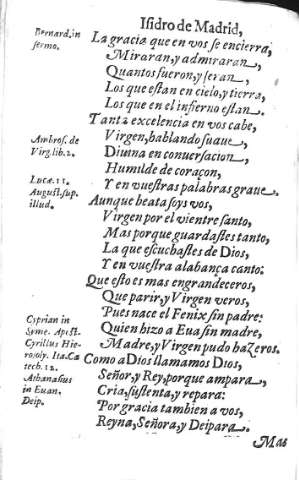 Isidro de Madrid,
Bernard, in
sermo.
La gracia que en vos se encierra,
Miraran, y admiraran,
Quantos fueron, y seran,
Los que estan en cielo, y tierra,
Los que en el infierno estan.
Tanta excelencia en vos cabe,
Ambros. de
Virg. lib. 2.
Virgen, hablando suaue,
Diuina en conuersacion,
Humilde de coraçon,
Lucæ. 11.
August. sup.
illud.
Y en vuestras palabras graue.
Aunque beata soys vos,
Virgen por el vientre santo,
Mas porque guardastes tanto,
La que escuchastes de Dios,
Y en vuestra alabança canto:
Que esto es mas engrandeceros,
Que parir, y Virgen veros,
Pues nace el Fenix sin padre:
Cyprian in
Syme. Apist.
Cyrillus Hie-
rosoly. Ita. Ca
tech. 12.
Athanasius
in Euan.
Deip.
Quien hizo a Eua sin madre,
Madre, y Virgen pudo hazeros.
Como a Dios llamamos Dios,
Señor, y Rey, porque ampara,
Cria, sustenta, y repara:
Por gracia tambien a vos,
Reyna, Señora, y Deipara.
Mas